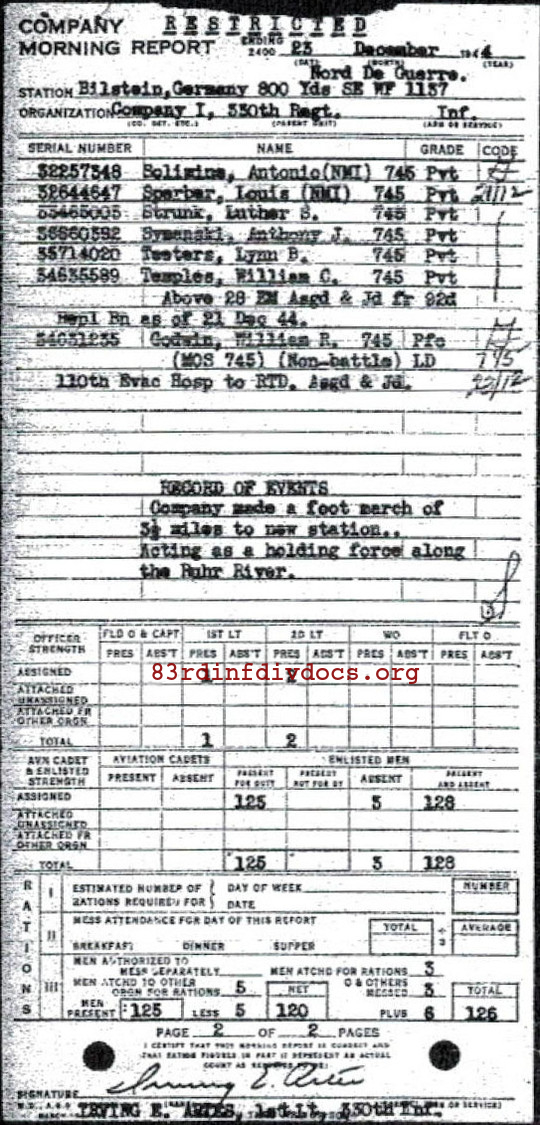 RESTRICTED
COMPANY
MORNING REPORT
ENDING 2400 23 December 1944
(DATE) (MONTH) (YEAR)
Nord De Guerre.
STATION Bilstein, Germany 800 Yds SE WF 1137
ORGANIZATION Company I, 330th Regt. Inf.
(CO. DET. ETC.) (PARENT UNIT) (ARM OR SERVICE)
SERIAL NUMBER NAME GRADE CODE
32257348 Solimine, Antonio (NMI) 745 Pvt
32644647 Sperber, Louis (NMI) 745 Pvt 21/12
Strunk, Luther S. 745 Pvt
Symanski, Anthony J. 745 Pvt
35714020 Teeters, Lynn B. 745 Pvt
34635589 Temples, William C. 745 Pvt
Above 28 EM Asgd & Jd fr 92d
Repl Bn as of 21 Dec 44.
34031235 Godwin, William R. 745 Pfc
(MOS 745) (Non-battle) LD 745
110th Evac Hosp to RTD. Asgd & Jd. 22/12
RECORD OF EVENTS
Company made a foot march of
3½ miles to new station..
Acting as a holding force along
the Ruhr River.
OFFICER STRENGTH FLD O & CAPT 1ST LT 2D LT WO FLT O
PRES ABS'T PRES ABS'T PRES ABS'T PRES ABS'T PRES ABS'T
ASSIGNED 1 2
83rdinfdivdocs.org
ATTACHED UNASSIGNED
ATTACHED FR OTHER ORGN
TOTAL 1 2
AVN CADET & ENLISTED STRENGTH AVIATION CADETS ENLISTED MEN
PRESENT ABSENT PRESENT FOR DUTY PRESENT NOT FOR DY ABSENT PRESENT AND ABSENT
ASSIGNED 125 3 128
ATTACHED UNASSIGNED
ATTACHED FR OTHER ORGN
TOTAL 125 3 128
RATIONS
I ESTIMATED NUMBER OF RATIONS REQUIRED FOR DAY OF WEEK DATE NUMBER
II MESS ATTENDANCE FOR DAY OF THIS REPORT TOTAL ÷ 3 AVERAGE
BREAKFAST DINNER SUPPER
III MEN AUTHORIZED TO MESS SEPARATELY MEN ATCHD FOR RATIONS 3
MEN ATCHD TO OTHER ORGN FOR RATIONS 5 NET O & OTHERS MESSED 3 TOTAL
MEN PRESENT 125 LESS 5 120 PLUS 6 126
PAGE 2 OF 2 PAGES
I CERTIFY THAT THIS MORNING REPORT IS CORRECT AND
THAT RATION FIGURES IN PART II REPRESENT AN ACTUAL
SIGNATURE Irving E. Artes
IRVING E. ARTES, 1st Lt, 330th Inf.